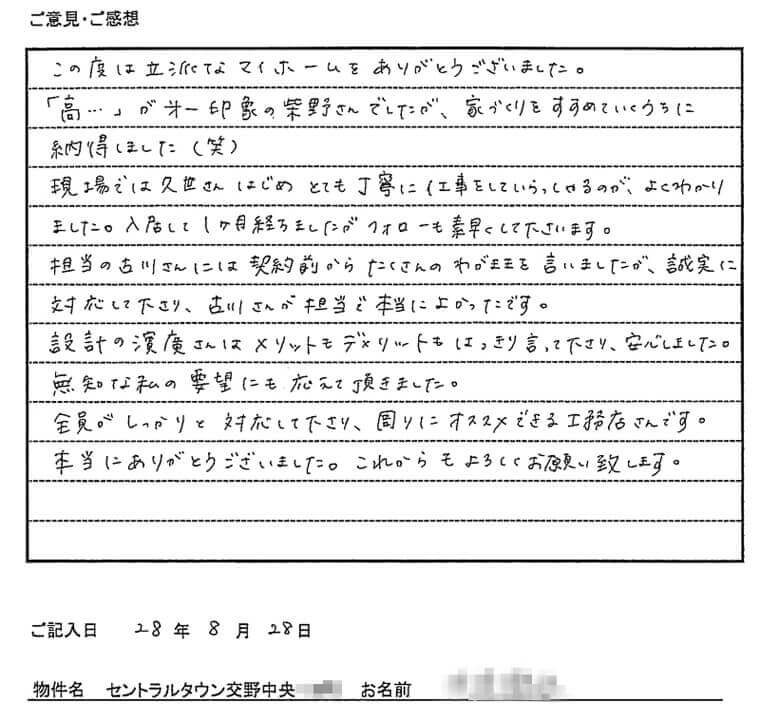 ご意見・ご感想
この度は立派なマイホームをありがとうございました。
「高…」が才一印象の柴野さんでしたが、家づくりをすすめていくうちに
納得しました(笑)
現場では久世さんはじめとても丁寧に仕事をしていらっしゃるのが、よくわかり
ました。入居して1ヶ月経ちましたがフォローも素早くして下さいます。
担当の古川さんには契約前からたくさんのわが王を言いましたが、誠実に
対応して下さり、古川さんが担当で本当によかったです。
設計の濱廣さんはメリットもデメリットもはっきり言って下さり、安心しました。
無知な私の要望にも応えて頂きました。
全員がしっかりと対応して下さり、周りにオススメできる工務店さんです。
本当にありがとうございました。これからもよろしくお願い致します。
ご記入日 28年8月28日
物件名 セントラルタウン交野中央 お名前